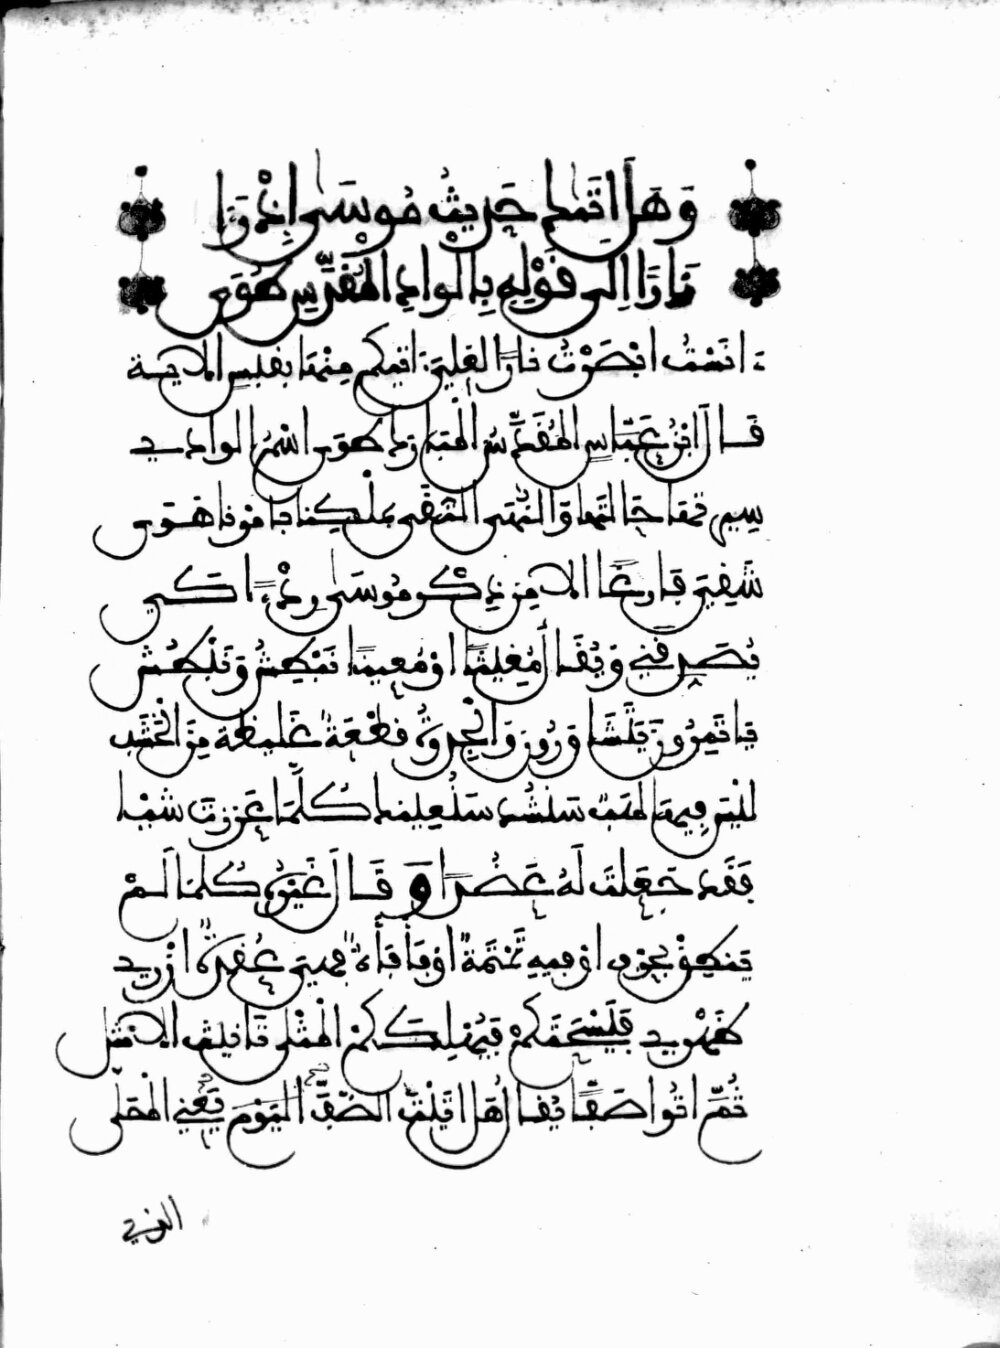 وَهَلَ اتَيٰكَ حَدِيثُ مُوسَىٰ إِذْ رَءَا
نَارًا اِلى قَوْلِهِ بِالْوَادِ المُقَدَّسِ طُوَى
ءَانَسْتُ ابْصَرْتُ نارًا لعلي ءاتيكم مِنْهَا بقبس الاية
قَالَ ابْنُ عَبَّاسٍ المُقَدَّسُ الْمُبَارَك طوى اسْمُ الوادي
سِيرتها حَالتها وَالنُّهَى التُّقَى بِمَلْكِنا بامرنا هَوَى
شَقِيَ فارِغًا الا مِن ذِكْرِ مُوسَىٰ رِدْءًا كي
يُصَدِّقَنِي وَيُقَالُ مُغِيثًا اوْ مُعِينًا يَبْطِشُ وَيَبْطُشُ
يَاتَمِرُونَ يَتَشَاوَرُونَ وَالْجِذْوَةُ قِطْعَةٌ غَلِيظَة مِنَ الْخَشَبِ
لَيْسَ فِيهَا لَهَبٌ سَنَشُد سَنُعِينك كُلَّمَا عَزَّزْتَ شَيْئًا
فَقَد جَعَلتَ لَهُ عَضُدًا وَقَالَ غَيْرُهُ كُلمَا لَمْ
يَنطِقْ بحرف اوْ فِيهِ تَمْتَمَةٌ اوْ فَأْفَأَةٌ فهيَ عُقْدَةٌ ازري
ظَهْرِي فَيَسْحَتَكُمْ فيُهلِكَكُمْ الْمُثْلَى تَانيث الامثل
ثُمَّ ائتُوا صَفًّا يُقَالُ هَلَ اتَيْتَ الصَّفَّ الْيَوْمَ يَعْنِي الْمُصَلَّى
الذي